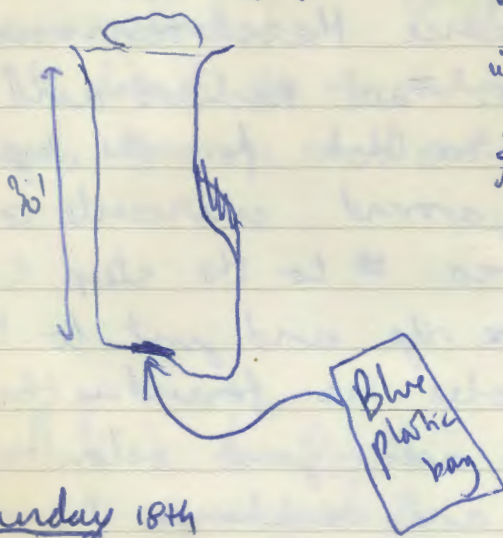 30'
Blue
plastic
bag
Sunday 18th